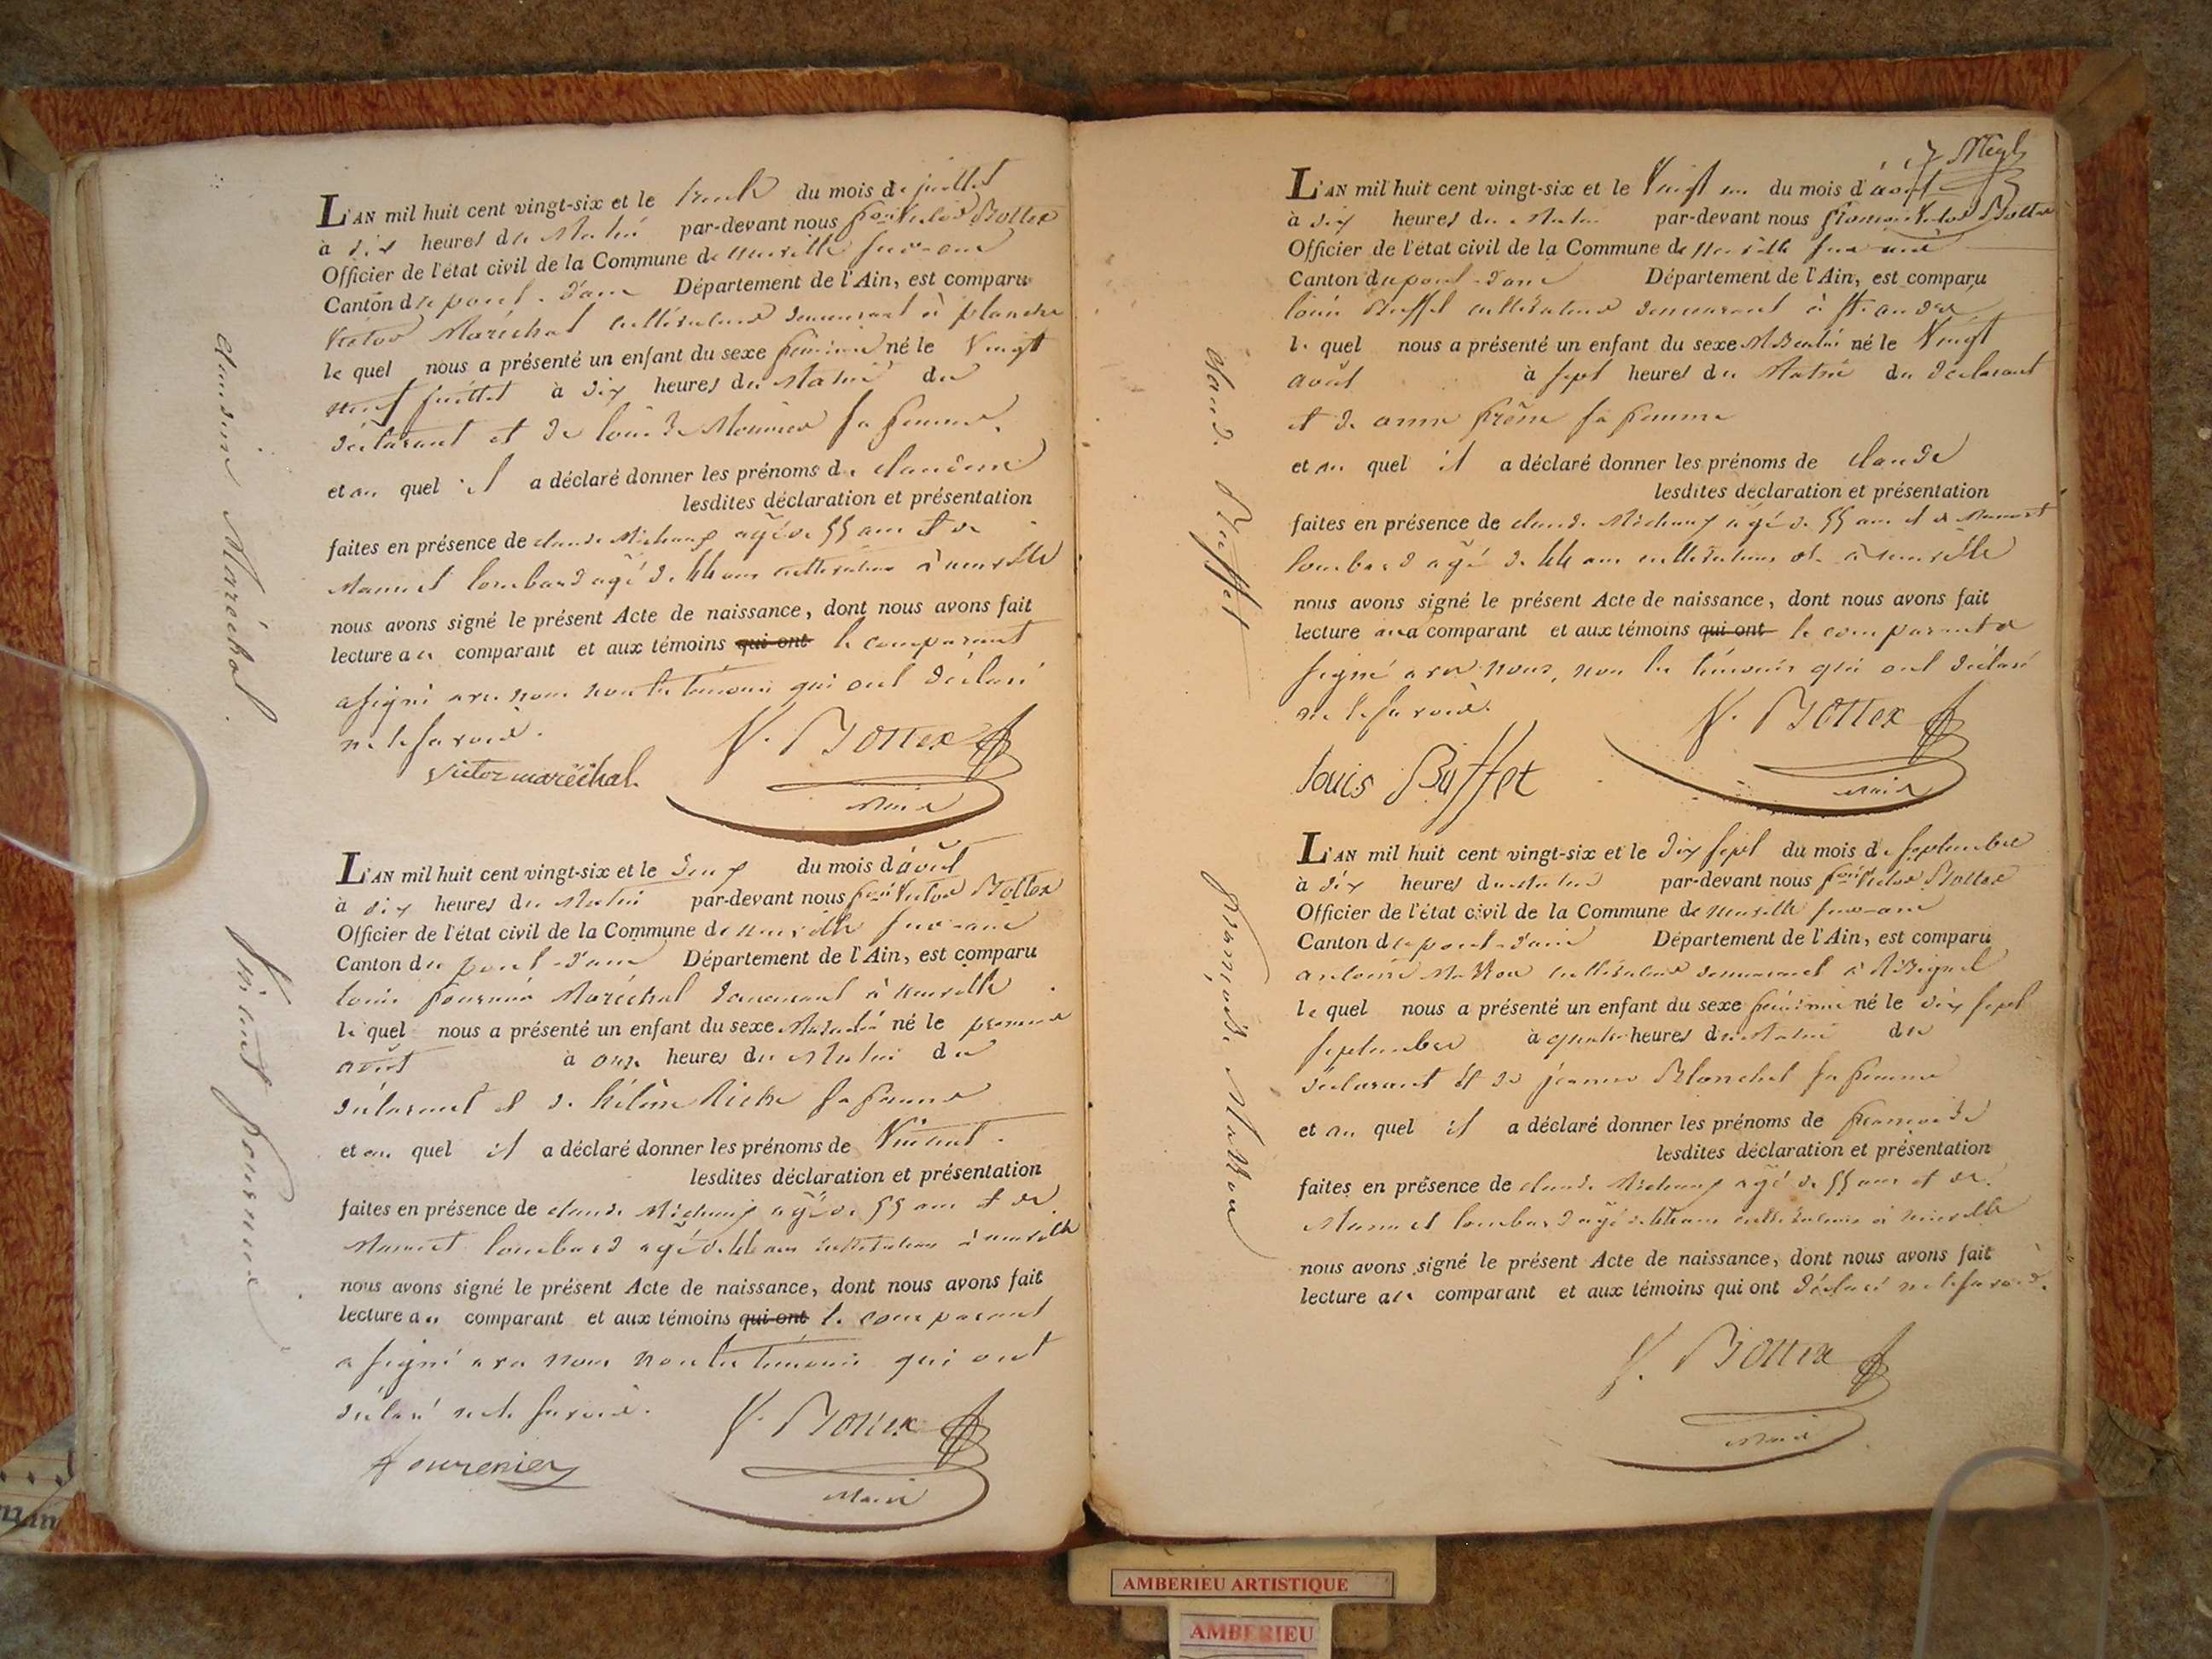 L'AN mil huit cent vingt-six et le trente du mois de juillet
à dix heures du Matin par-devant nous françois Victor Bottex
Officier de l'état civil de la Commune de neuville sur-ain
Canton du pont-d'ain Département de l'Ain, est comparu
Victor Maréchal cultivateur demeurant à planche
le quel nous a présenté un enfant du sexe féminin né le Vingt
neuf juillet à dix heures du Matin du
déclarant et de louise Monnier sa femme.
et au quel il a déclaré donner les prénoms de claudine
lesdites déclaration et présentation
faites en présence de claude Michaux agé de 55 ans et de
Manuel lombard agé de 44 ans cultivateurs à neuville
nous avons signé le présent Acte de naissance, dont nous avons fait
lecture au comparant et aux témoins qui ont le comparant
a signé avec nous non les témoins qui ont déclaré
ne le savoir.
victor maréchal
V. Bottex
Maire
claudine Maréchal.
L'AN mil huit cent vingt-six et le deux du mois d'août
à dix heures du Matin par-devant nous fçois Victor Bottex
Officier de l'état civil de la Commune de neuville sur-ain
Canton du pont-d'ain Département de l'Ain, est comparu
louis fournier Maréchal demeurant à neuville
le quel nous a présenté un enfant du sexe Masculin né le premier
août à onze heures du Matin du
déclarant et de hélène Riche sa femme
et au quel il a déclaré donner les prénoms de Vincent.
lesdites déclaration et présentation
faites en présence de claude Michaux agé de 55 ans et de
Manuel lombard agé de 44 ans cultivateurs à neuville
nous avons signé le présent Acte de naissance, dont nous avons fait
lecture au comparant et aux témoins qui ont le comparant
a signé avec nous non les témoins qui ont
déclaré ne le savoir.
fourenier
V. Bottex
Maire
Vincent fournier
L'AN mil huit cent vingt-six et le Vingt un du mois d'août
à dix heures du Matin par-devant nous françois Victor Bottex
Officier de l'état civil de la Commune de Neuville sur ain
Canton du pont-d'ain Département de l'Ain, est comparu
louis Buffet cultivateur demeurant à St. andré
le quel nous a présenté un enfant du sexe Masculin né le Vingt
août à sept heures du Matin du déclarant
et de anne frême sa femme
et au quel il a déclaré donner les prénoms de claude
lesdites déclaration et présentation
faites en présence de claude Michaux agé de 55 ans et de Manuel
lombard agé de 44 ans cultivateurs à neuville
nous avons signé le présent Acte de naissance, dont nous avons fait
lecture au comparant et aux témoins qui ont le comparant a
signé avec nous, non les témoins qui ont déclaré
ne le savoir.
louis Buffet
V. Bottex
Maire
claude Buffet
L'AN mil huit cent vingt-six et le dix sept du mois de septembre
à dix heures du Matin par-devant nous fçois Victor Bottex
Officier de l'état civil de la Commune de neuville sur-ain
Canton du pont-d'ain Département de l'Ain, est comparu
antoine cultivateur demeurant à
le quel nous a présenté un enfant du sexe féminin né le dix sept
septembre à quatre heures du Matin du
déclarant et de jeanne Blanchet sa femme
et au quel il a déclaré donner les prénoms de francoise
lesdites déclaration et présentation
faites en présence de claude Michaux agé de 55 ans et de
Manuel lombard agé de 44 ans cultivateurs à neuville
nous avons signé le présent Acte de naissance, dont nous avons fait
lecture au comparant et aux témoins qui ont déclaré ne le savoir.
V. Bottex
Maire
françoise
AMBERIEU ARTISTIQUE
AMBERIEU